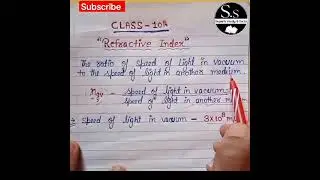 Subscribe
CLASS-10th
S.s
"Refractive Index"
The ratio of speed of light in vacuum
to the speed of light in another medium.
speed of light in vacuum
speed of light in another
speed of light in vacuum - 3x10⁸ m